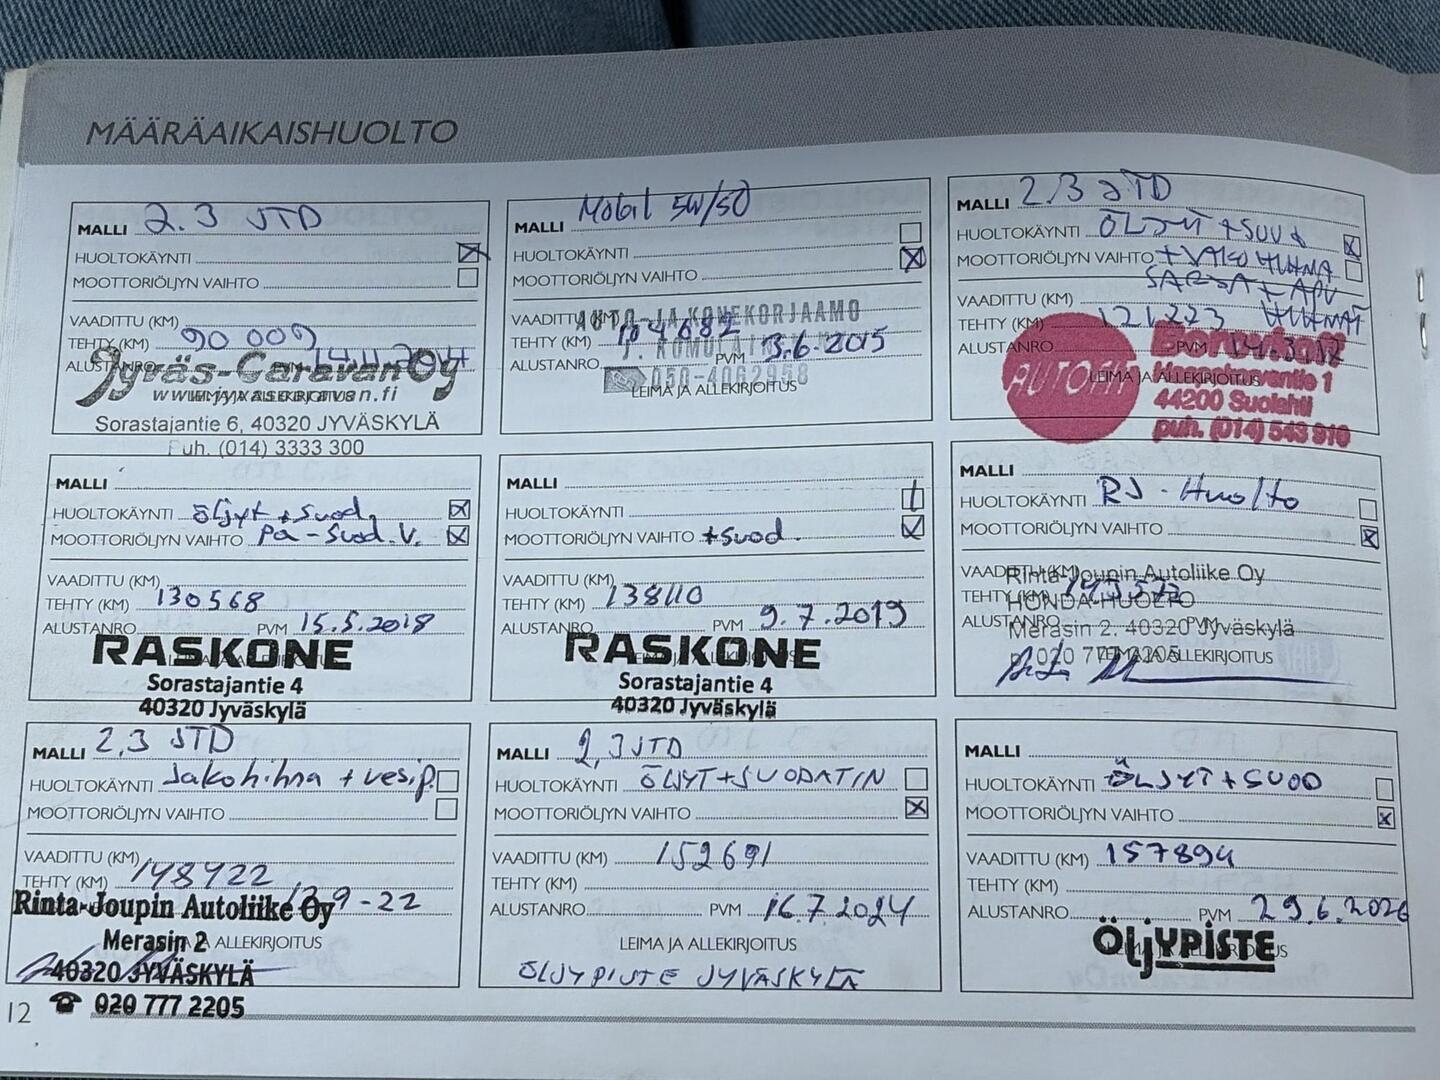 MÄÄRÄAIKAISHUOLTO
MALLI 2.3 JTD
HUOLTOKÄYNTI
MOOTTORIÖLJYN VAIHTO
VAADITTU (KM)
TEHTY (KM) 90 000
ALUSTANRO
Jyväs-Caravan Oy
www.jyvascaravan.fi
Sorastajantie 6, 40320 JYVÄSKYLÄ
Puh. (014) 3333 300
MALLI Mobil 5W/50
HUOLTOKÄYNTI
MOOTTORIÖLJYN VAIHTO
AUTO- JA KONEKORJAAMO
VAADITTU (KM)
TEHTY (KM) 104682
ALUSTANRO PVM 3.6.2015
050-4062958
LEIMA JA ALLEKIRJOITUS
MALLI 2,3 JTD
HUOLTOKÄYNTI ÖLJYT + SUOD
MOOTTORIÖLJYN VAIHTO
VAADITTU (KM)
TEHTY (KM) 121223
ALUSTANRO PVM
AUTOFIT
LEIMA JA ALLEKIRJOITUS
44200 Suolahti
puh. (014) 543 910
MALLI
HUOLTOKÄYNTI öljyt + suod.
MOOTTORIÖLJYN VAIHTO Pa-Suod. V.
VAADITTU (KM)
TEHTY (KM) 130568
ALUSTANRO PVM 15.5.2018
RASKONE
Sorastajantie 4
40320 Jyväskylä
MALLI
HUOLTOKÄYNTI
MOOTTORIÖLJYN VAIHTO +suod.
VAADITTU (KM)
TEHTY (KM) 138110
ALUSTANRO PVM 9.7.2019
RASKONE
Sorastajantie 4
40320 Jyväskylä
MALLI
HUOLTOKÄYNTI RJ-Huolto
MOOTTORIÖLJYN VAIHTO
VAADITTU (KM)
Rinta-Joupin Autoliike Oy
TEHTY (KM)
HONDA-HUOLTO
ALUSTANRO PVM
Merasin 2. 40320 Jyväskylä
p. 020 777 2205
LEIMA JA ALLEKIRJOITUS
MALLI 2,3 JTD
HUOLTOKÄYNTI Jakohihna + vesip.
MOOTTORIÖLJYN VAIHTO
VAADITTU (KM)
TEHTY (KM) 148422
Rinta-Joupin Autoliike Oy
Merasin 2
LEIMA JA ALLEKIRJOITUS
40320 JYVÄSKYLÄ
☎ 020 777 2205
MALLI 2,3 JTD
HUOLTOKÄYNTI ÖLJYT+SUODATIN
MOOTTORIÖLJYN VAIHTO
VAADITTU (KM) 152691
TEHTY (KM)
ALUSTANRO PVM 16.7.2024
LEIMA JA ALLEKIRJOITUS
ÖLJYPISTE JYVÄSKYLÄ
MALLI
HUOLTOKÄYNTI ÖLJYT+SUOD
MOOTTORIÖLJYN VAIHTO
VAADITTU (KM) 157894
TEHTY (KM)
ALUSTANRO PVM 29.6.2026
ÖLJYPISTE
12